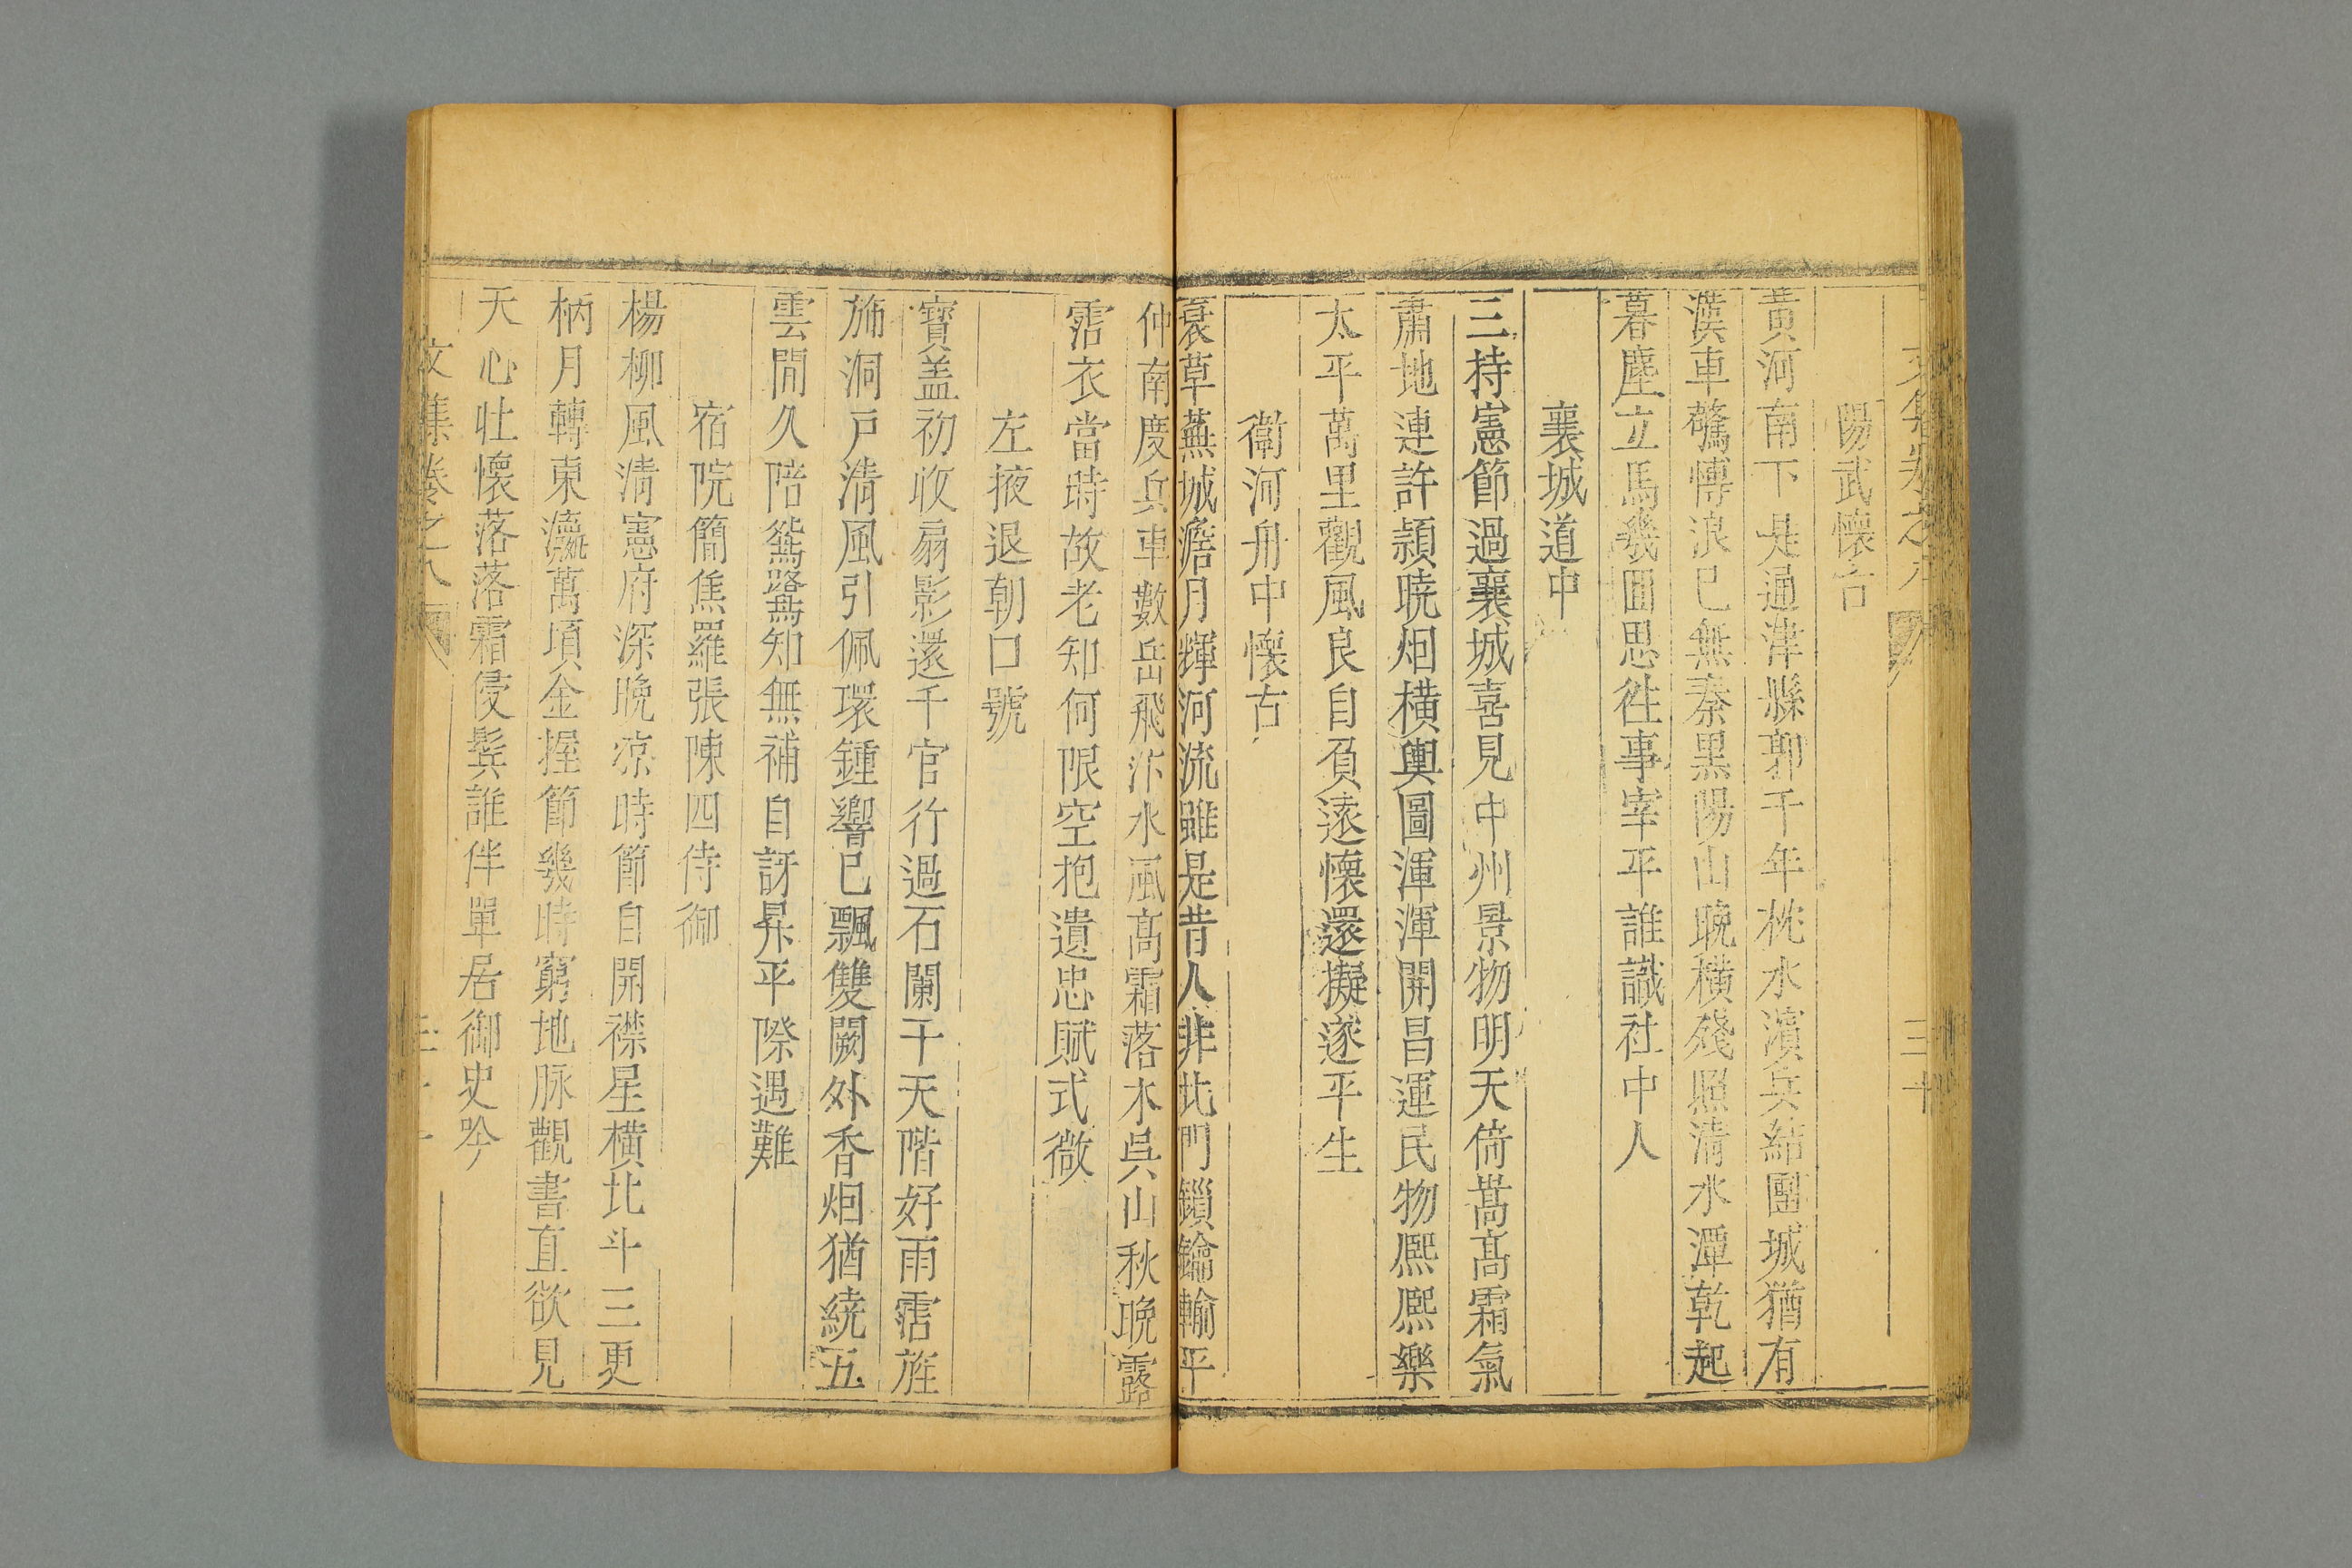 陽武懷古
黃河南下是通津縣郭千年枕水濱兵結團城猶有
漢車驚博浪已無秦黑陽山晚橫殘照清水潭乾起
暮塵立馬幾囬思徃事宰平誰識社中人
襄城道中
三持憲節過襄城喜見中州景物明天倚嵩高霜氣
肅地連許潁曉烟橫輿圖渾渾開昌運民物熈熈樂
太平萬里觀風良自負遠懷還擬遂平生
衛河舟中懷古
衰草蕪城澹月輝河流雖是昔人非北門鎖鑰輸平
仲南度兵車數岳飛汴水風高霜落木呉山秋晚露
霑衣當時故老知何限空抱遺忠賦式微
左掖退朝口號
寶盖初收扇影還千官行過石闌干天階好雨霑旌
斾洞戶清風引佩環鍾響已飄雙闕外香烟猶繞五
雲間久陪鵉鷺知無補自訝昇平際遇難
宿院簡焦羅張陳四侍御
楊柳風清憲府深晚凉時節自開襟星橫北斗三更
柄月轉東瀛萬頃金握節幾時窮地脉觀書直欲見
天心壯懷落落霜侵鬂誰伴單居御史吟
文集卷之八